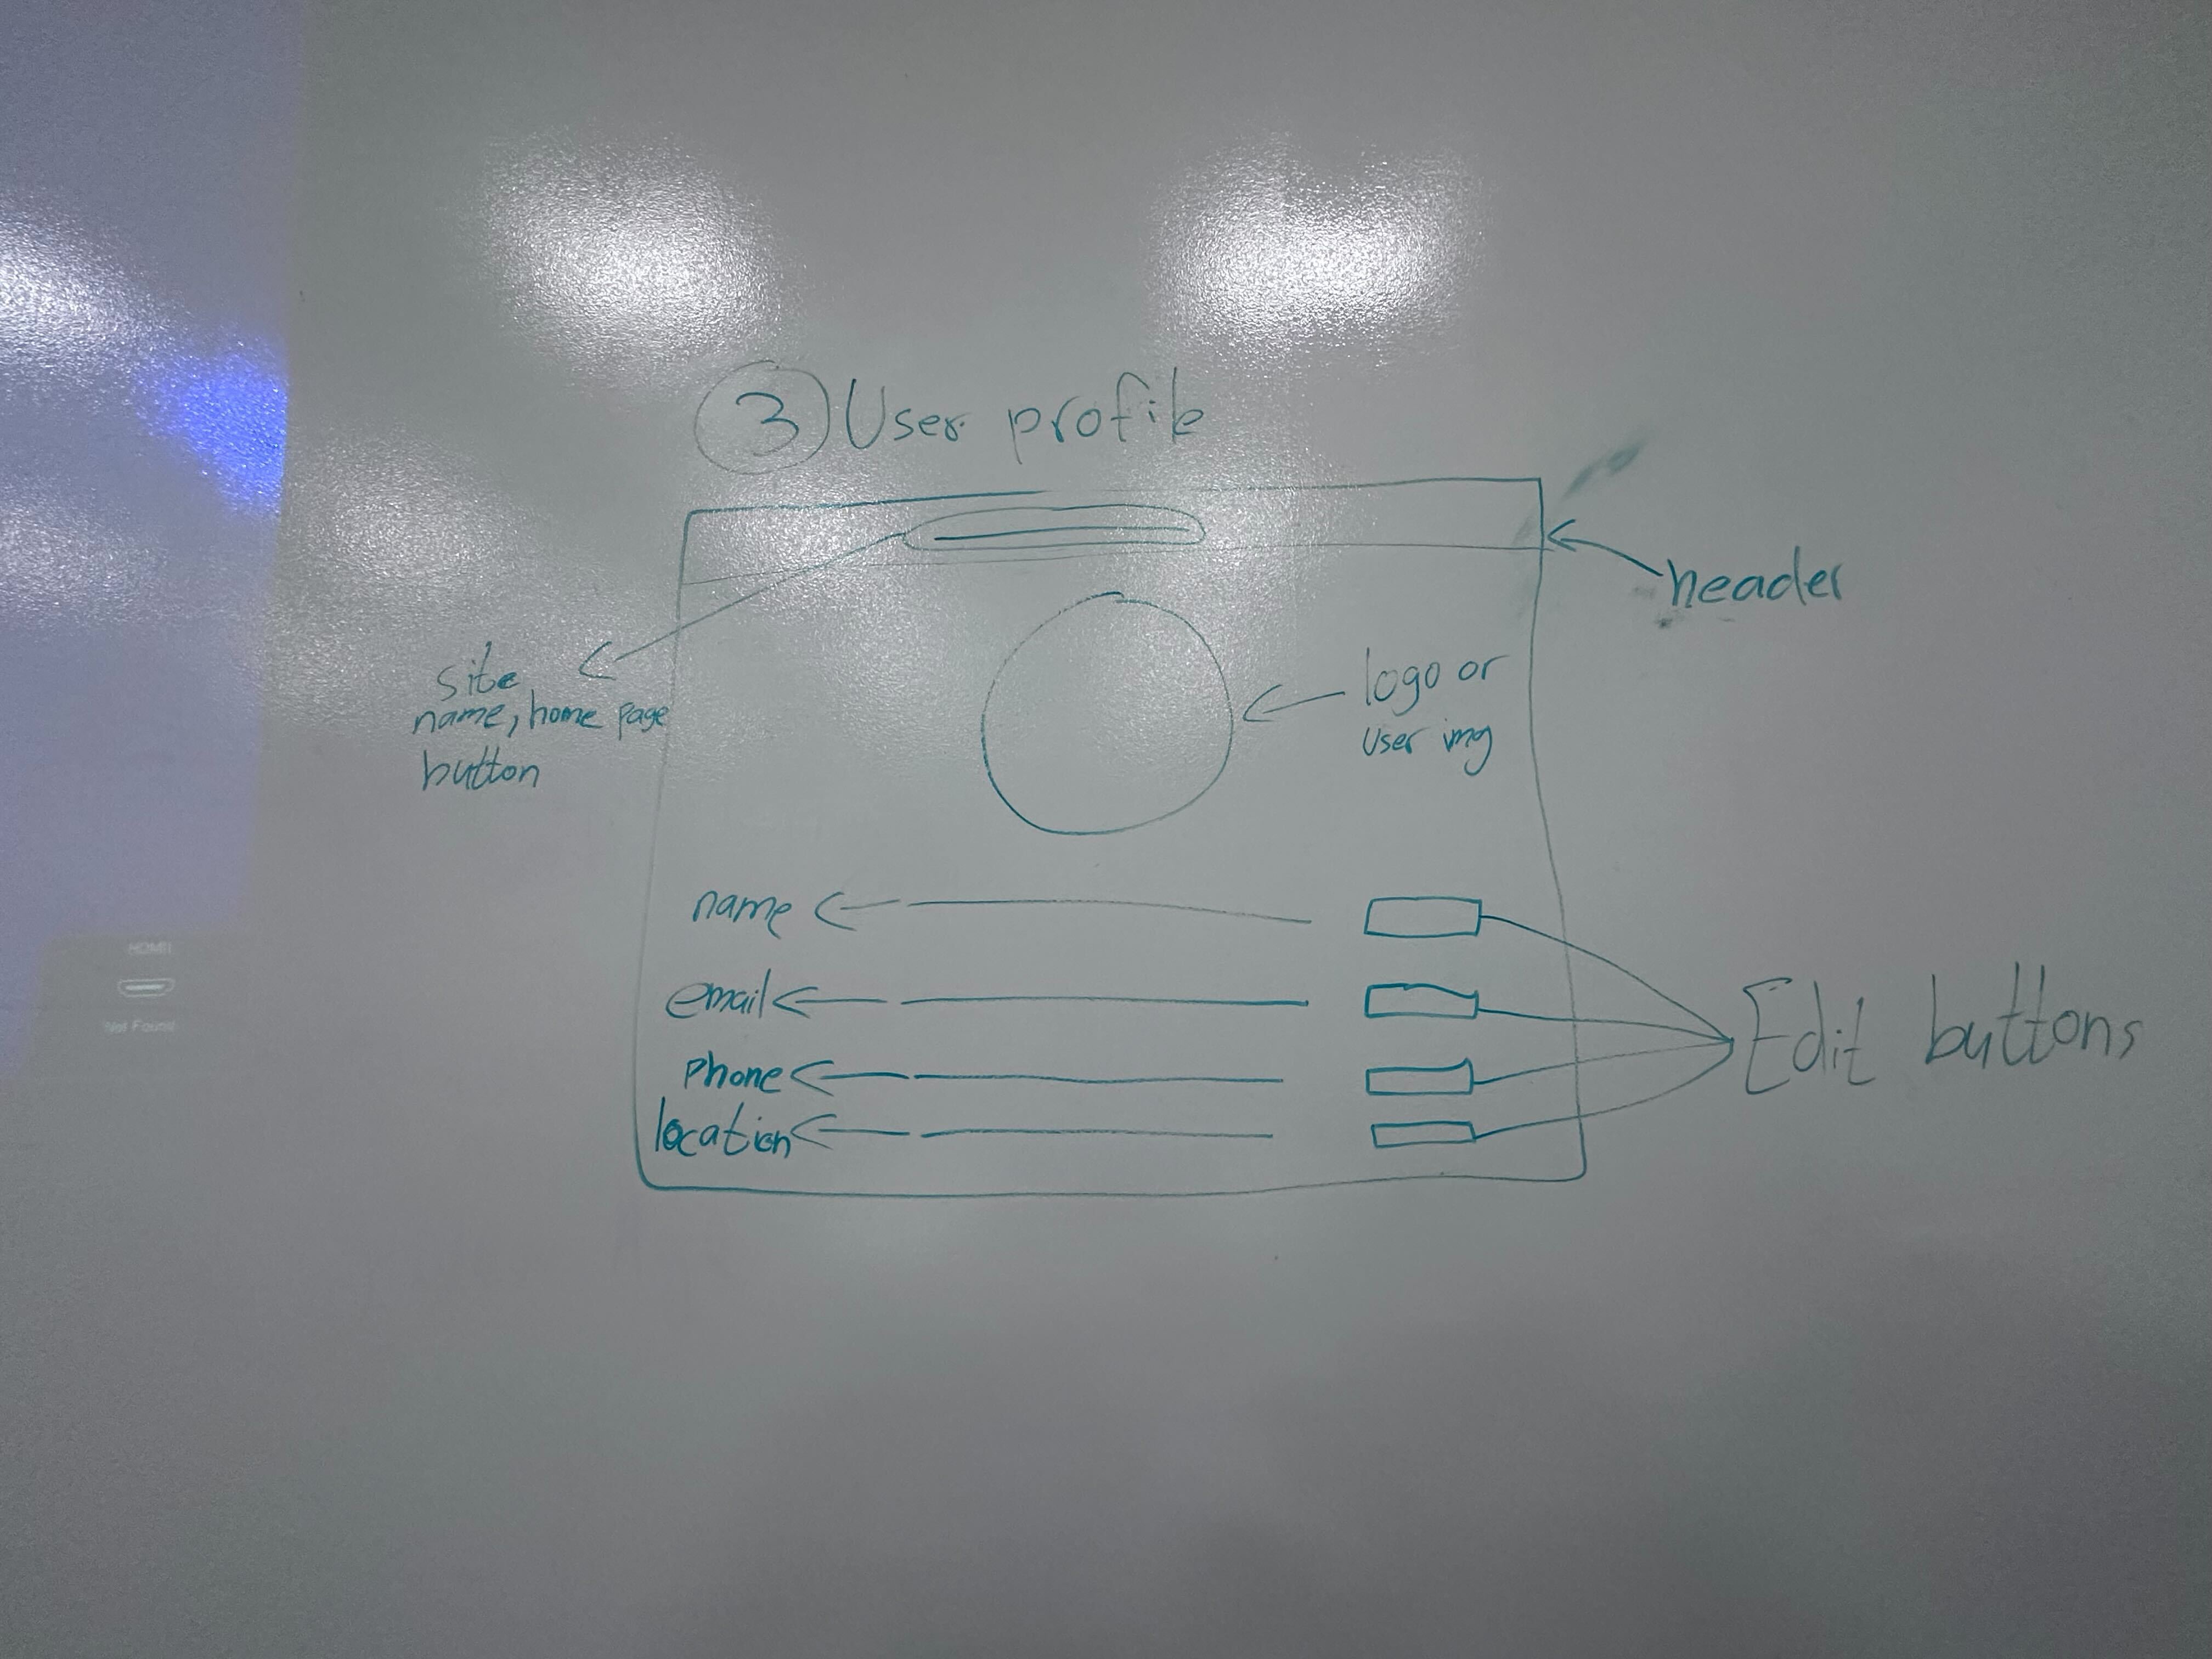 3 User profile
header
site
name, home page
button
logo or
user img
name
email
phone
location
Edit buttons
HDMI1
Not Found